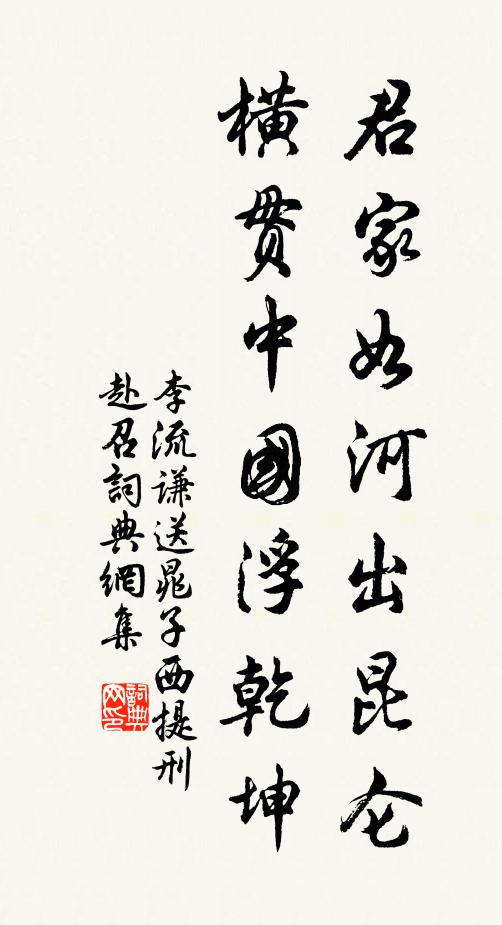 君家如河出昆仑
橫貫中國浮乾坤
李流谦送晁子西提刑
赴召詞典網集
詞典网印